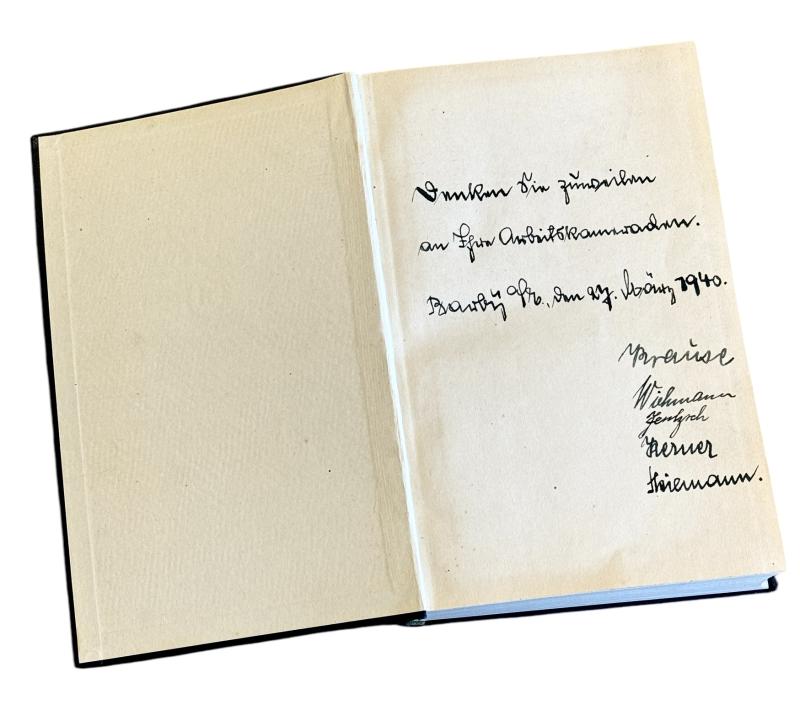 Denken Sie zuweilen
an Ihre Arbeitskameraden.
Barby, den 27. März 1940.
Krause
Wichmann
Jentzsch
Kerner
Thiemann.